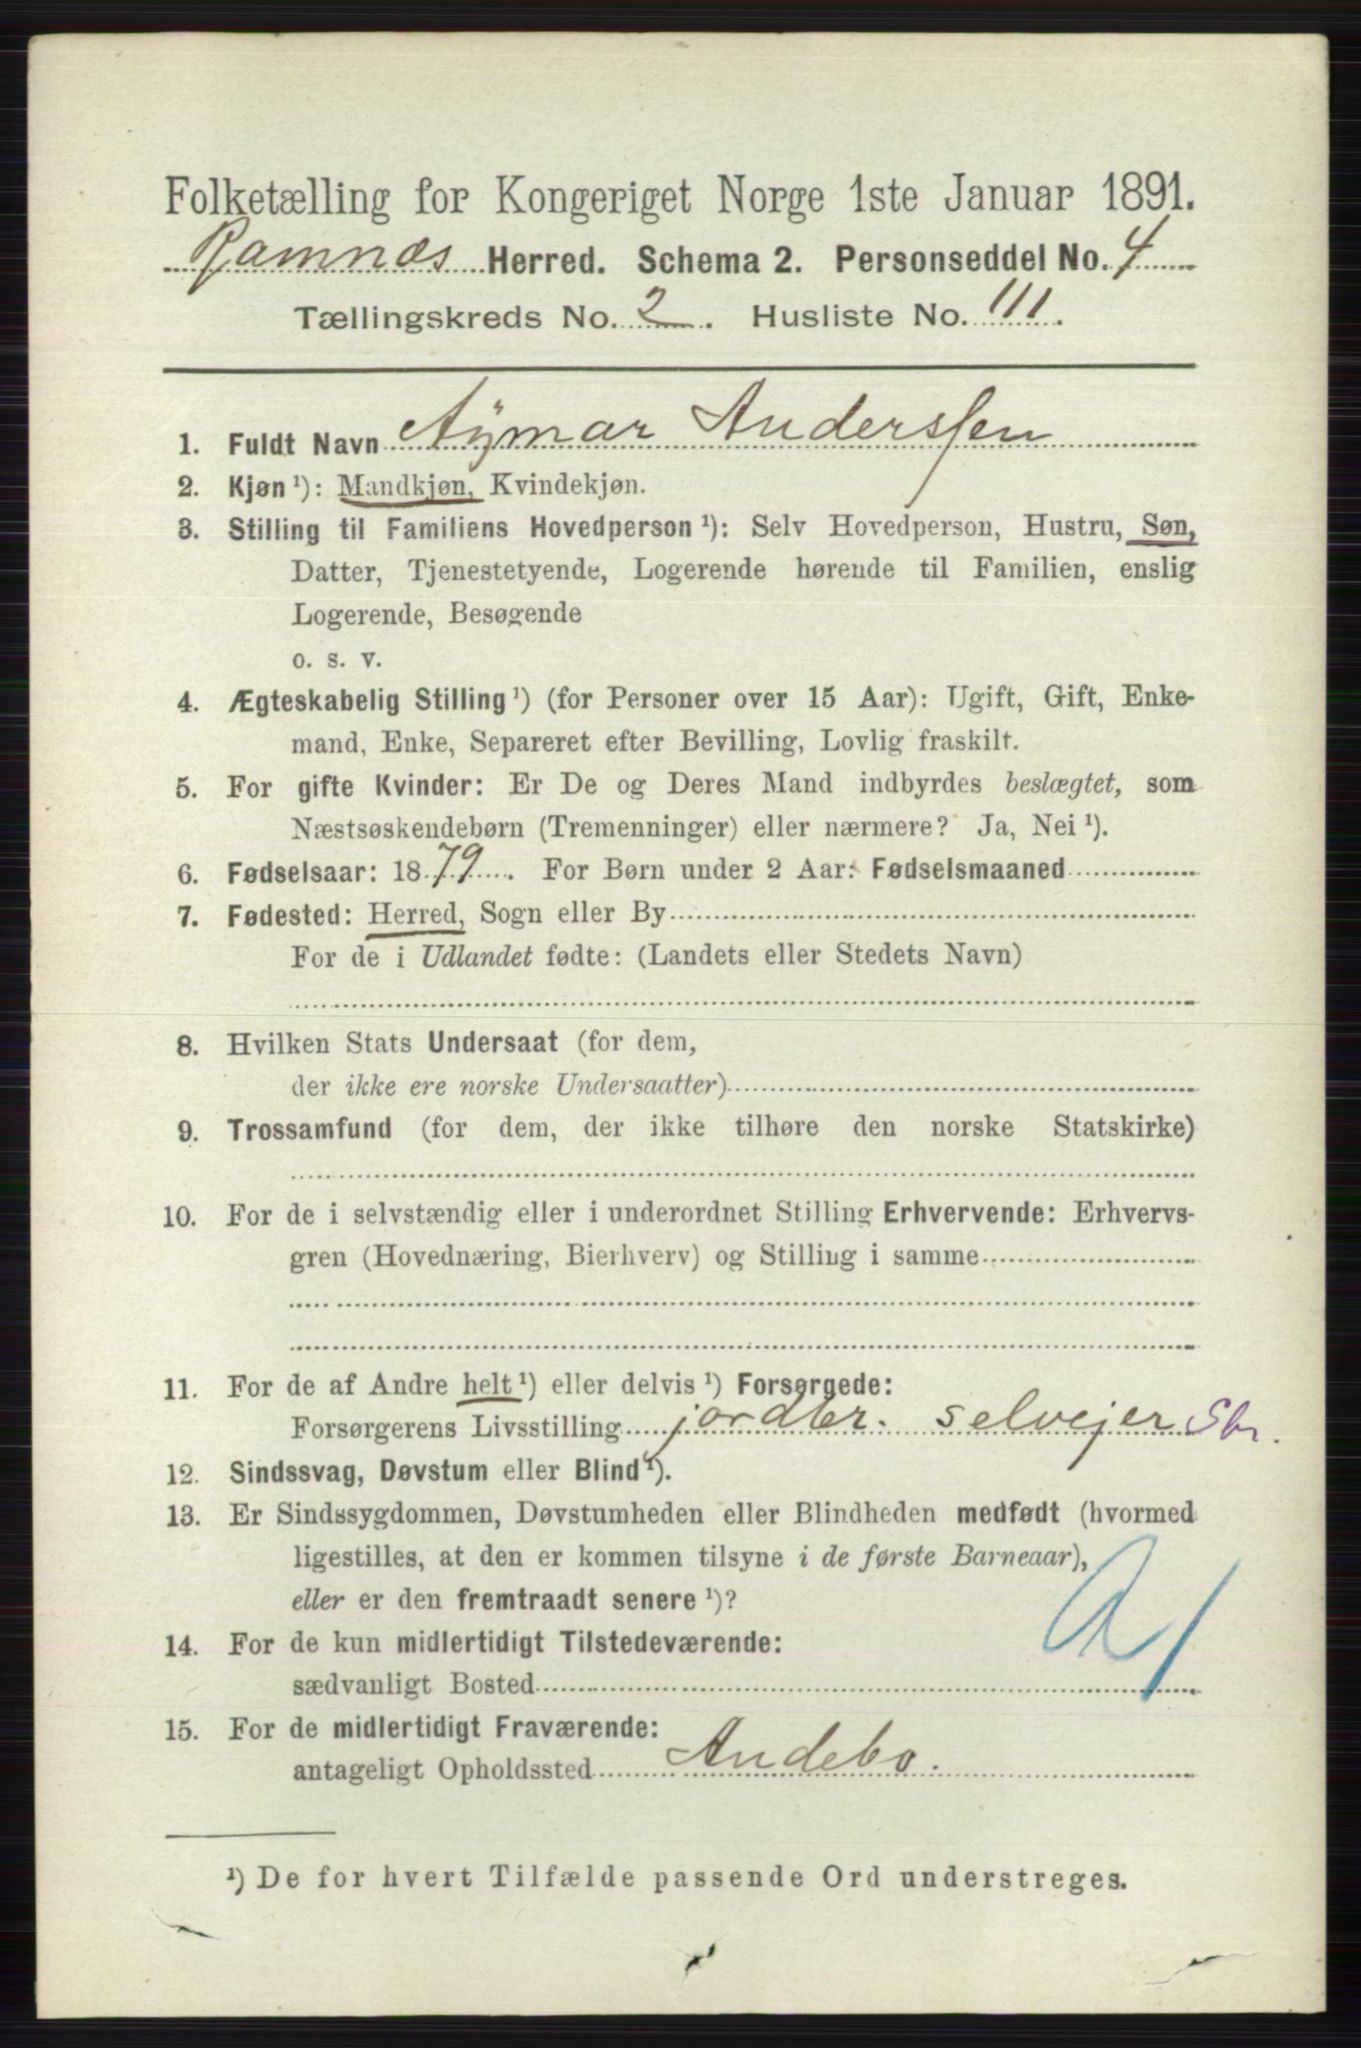 Folketælling for Kongeriget Norge 1ste Januar 1891.
Ramnæs Herred. Schema 2. Personseddel No. 4
Tællingskreds No. 2. Husliste No. 111.
1. Fuldt Navn Aÿmar Anderssen
2. Kjøn ¹): Mandkjøn, Kvindekjøn.
3. Stilling til Familiens Hovedperson ¹): Selv Hovedperson, Hustru, Søn,
Datter, Tjenestetyende, Logerende hørende til Familien, enslig
Logerende, Besøgende
o. s. v.
4. Ægteskabelig Stilling ¹) (for Personer over 15 Aar): Ugift, Gift, Enke-
mand, Enke, Separeret efter Bevilling, Lovlig fraskilt.
5. For gifte Kvinder: Er De og Deres Mand indbyrdes beslægtet, som
Næstsøskendebørn (Tremenninger) eller nærmere? Ja, Nei ¹).
6. Fødselsaar: 1879. For Børn under 2 Aar: Fødselsmaaned
7. Fødested: Herred, Sogn eller By
For de i Udlandet fødte: (Landets eller Stedets Navn)
8. Hvilken Stats Undersaat (for dem,
der ikke ere norske Undersaatter)
9. Trossamfund (for dem, der ikke tilhøre den norske Statskirke)
10. For de i selvstændig eller i underordnet Stilling Erhvervende: Erhvervs-
gren (Hovednæring, Bierhverv) og Stilling i samme
11. For de af Andre helt ¹) eller delvis ¹) Forsørgede:
Forsørgerens Livsstilling jordbr. selvejer Sbr.
12. Sindssvag, Døvstum eller Blind ¹).
13. Er Sindssygdommen, Døvstumheden eller Blindheden medfødt (hvormed
ligestilles, at den er kommen tilsyne i de første Barneaar),
eller er den fremtraadt senere ¹)?
14. For de kun midlertidigt Tilstedeværende:
sædvanligt Bosted
15. For de midlertidigt Fraværende:
antageligt Opholdssted Andebo.
¹) De for hvert Tilfælde passende Ord understreges.